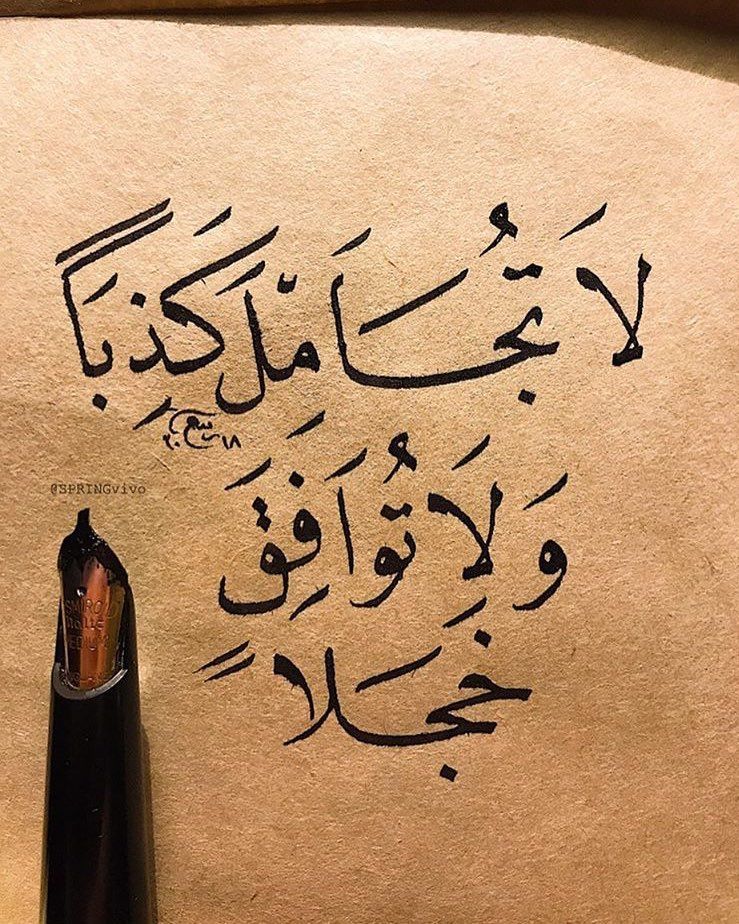 لَا تُجَامِّلَ كَذِبَاً
وَلَا تُوَافِقَ
خَجَلاً
@SPRINGvivo